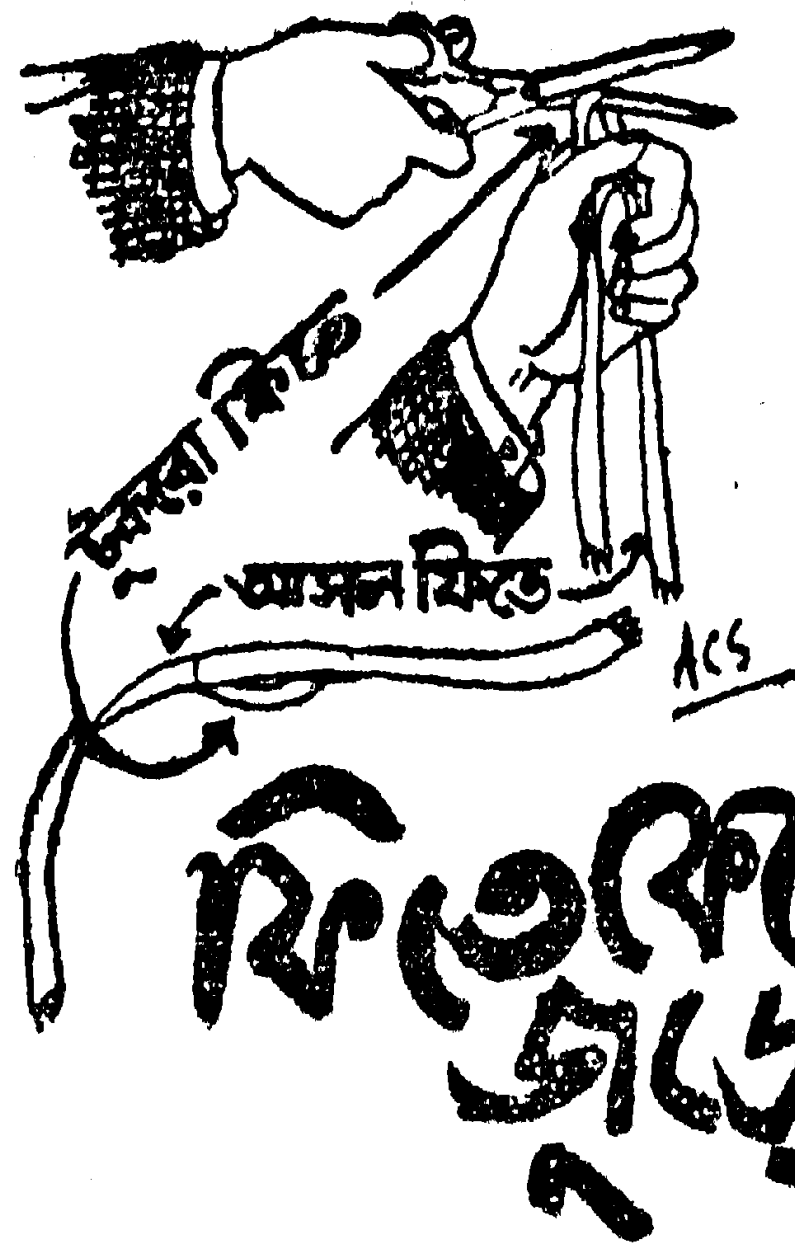 টুকরো ফিতে
আসল ফিতে
ACS
ফিতে কে
জুড়ে